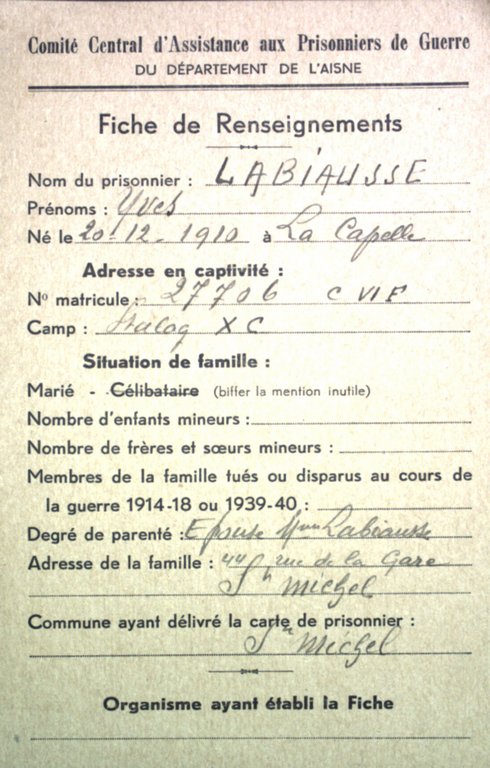 Comité Central d'Assistance aux Prisonniers de Guerre
DU DÉPARTEMENT DE L'AISNE
Fiche de Renseignements
Nom du prisonnier : LABIAUSSE
Prénoms : Yves
Né le 20-12-1910 à La Capelle
Adresse en captivité :
No matricule : 27706 C VI F
Camp : Stalag X C
Situation de famille :
Marié - Célibataire (biffer la mention inutile)
Nombre d'enfants mineurs :
Nombre de frères et sœurs mineurs :
Membres de la famille tués ou disparus au cours de
la guerre 1914-18 ou 1939-40 :
Degré de parenté : Epouse Mme Labiausse
Adresse de la famille : 44 rue de la Gare
St Michel
Commune ayant délivré la carte de prisonnier :
St Michel
Organisme ayant établi la Fiche